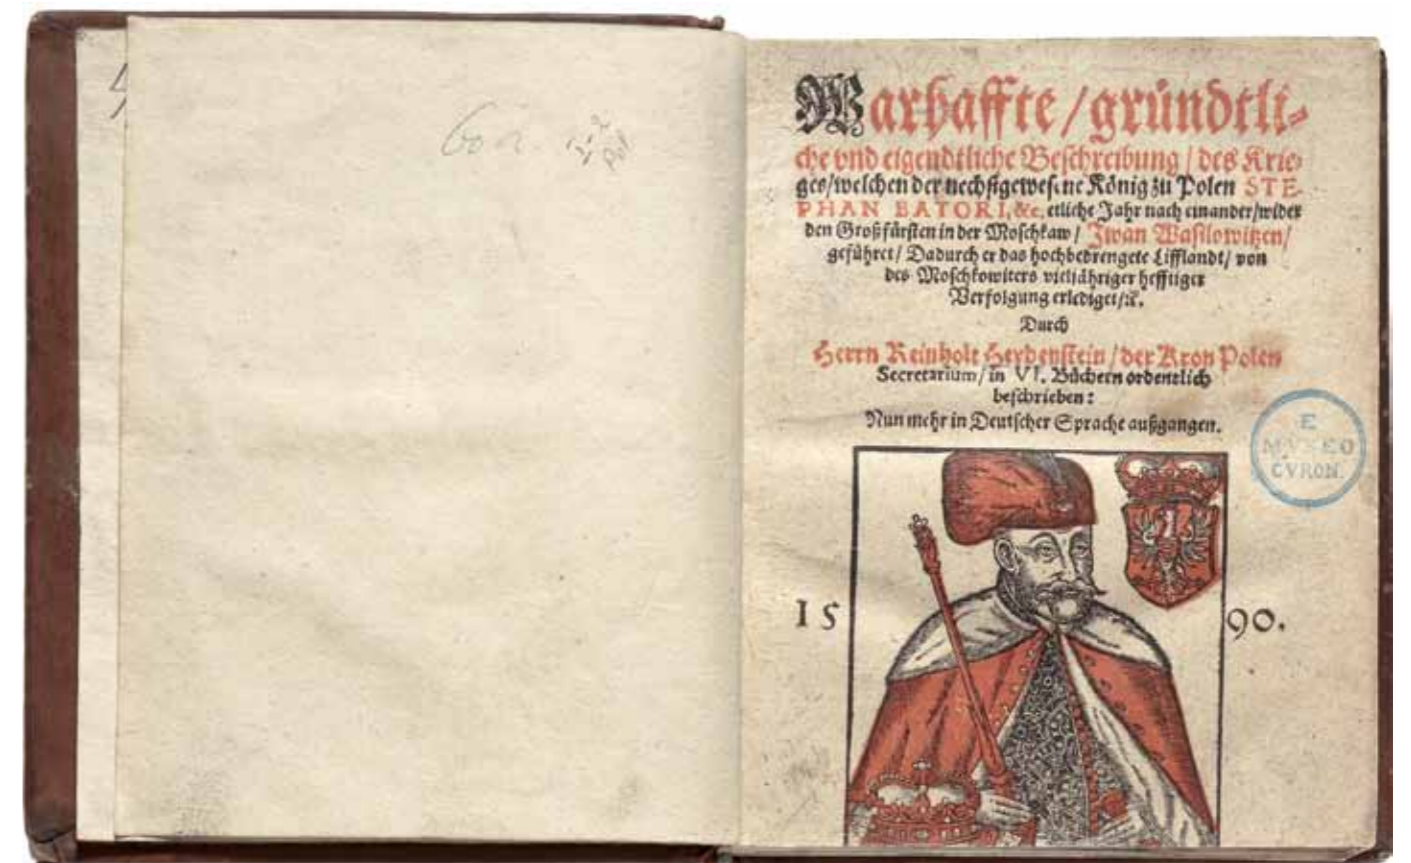 Warhaffte / gründtli-
che vnd eigendtliche Beschreibung / des Krie-
ges / welchen der nechstgewesene König zu Polen STE-
PHAN BATORI, &c. etliche Jahr nach einander / wider
den Großfürsten in der Moschkaw / Iwan Wasilowitzen /
geführet / Dadurch er das hochbedrengete Lifflandt / von
des Moschkowiters vieljähriger hefftiger
Verfolgung erlediget / ꝛc.
Durch
Herrn Reinholt Heydenstein / der Kron Polen
Secretarium / in VI. Büchern ordentlich
beschrieben :
Nun mehr in Deutscher Sprache außgangen.
E
MVSEO
CVRON.
15 90.